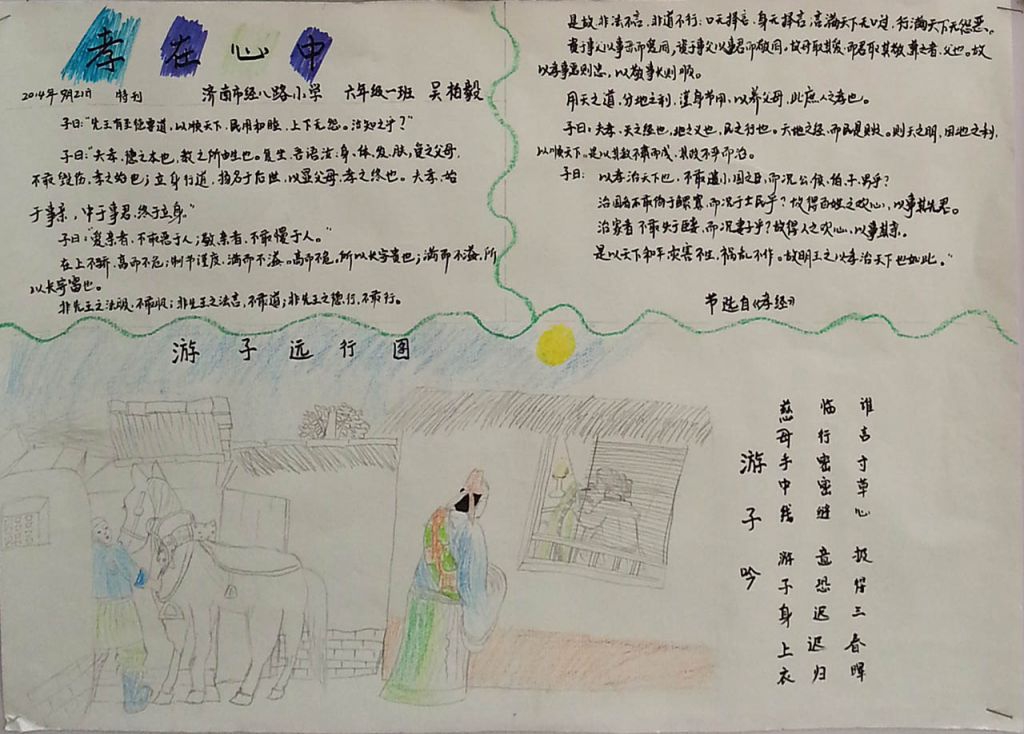 孝在心中
2014年9月21日 特刊 济南市经八路小学 六年级一班 吴柏毅
子曰:“先王有至德要道,以顺天下,民用和睦,上下无怨。汝知之乎?”
子曰:“夫孝,德之本也,教之所由生也。复坐,吾语汝:身、体、发、肤,受之父母,
不敢毁伤,孝之始也;立身行道,扬名于后世,以显父母,孝之终也。夫孝,始
于事亲,中于事君,终于立身。”
子曰:“爱亲者,不敢恶于人;敬亲者,不敢慢于人。”
在上不骄,高而不危;制节谨度,满而不溢。高而不危,所以长守贵也;满而不溢,所
以长守富也。
非先王之法服,不敢服;非先王之法言,不敢道;非先王之德行,不敢行。
是故,非法不言,非道不行;口无择言,身无择言;言满天下无口过,行满天下无怨恶。
资于事父以事母而爱同,资于事父以事君而敬同,故母取其爱,而君取其敬,兼之者,父也。故
以孝事君则忠,以敬事长则顺。
用天之道,分地之利,谨身节用,以养父母,此庶人之孝也。
子曰:夫孝,天之经也,地之义也,民之行也。天地之经,而民是则之。则天之明,因地之利,
以顺天下。是以其教不肃而成,其政不严而治。
子曰: 以孝治天下也,不敢遗小国之臣,而况公、侯、伯、子、男乎?
治国者不敢侮于鳏寡,而况于士民乎?故得百姓之欢心,以事其先君。
治家者不敢失于臣妾,而况妻子乎?故得人之欢心,以事其亲。
是以天下和平,灾害不生,祸乱不作。故明王之以孝治天下也如此。”
节选自《孝经》
游子远行图
游子吟
慈母手中线 游子身上衣
临行密密缝 意恐迟迟归
谁言寸草心 报得三春晖